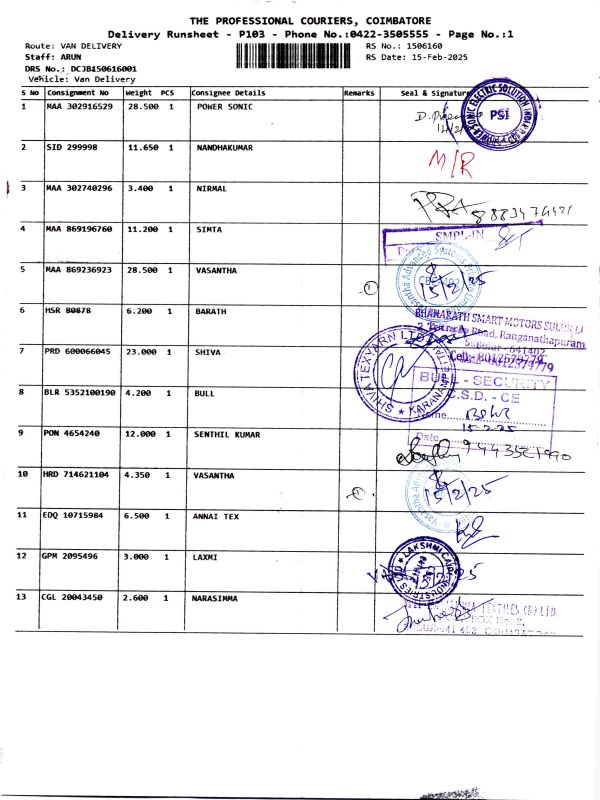 THE PROFESSIONAL COURIERS, COIMBATORE
Delivery Runsheet - P103 - Phone No.:0422-3505555 - Page No.:1
Route: VAN DELIVERY
RS No.: 1506160
Staff: ARUN
RS Date: 15-Feb-2025
DRS No.: DCJB150616001
Vehicle: Van Delivery
S No Consignment No Weight PCS Consignee Details Remarks Seal & Signature
1 MAA 302916529 28.500 1 POWER SONIC
PSI
2 SID 299998 11.650 1 NANDHAKUMAR
M/R
3 MAA 302740296 3.400 1 NIRMAL
4 MAA 869196760 11.200 1 SIMTA
SMPL-IN
5 MAA 869236923 28.500 1 VASANTHA
Vasantha Advanced Systems
15/2/25
1
6 HSR 80878 6.200 1 BARATH
BHAHARATH SMART MOTORS SULUR
Road, Ranganathapuram
Sulur - 641402
Cell: 8012579779
7 PRD 600066045 23.000 1 SHIVA
SHIVA TEXYARN LTD
8 BLR 5352100190 4.200 1 BULL
BULL - SECURITY
C.S.D. - CE
Name
15-2-25
Date
9 PON 4654240 12.000 1 SENTHIL KUMAR
10 HRD 714621104 4.350 1 VASANTHA
15/2/25
1
11 EDQ 10715984 6.500 1 ANNAI TEX
12 GPM 2095496 3.000 1 LAXMI
LAKSHMI
13 CGL 20043450 2.600 1 NARASIMMA
TEXTILES (P) LTD.